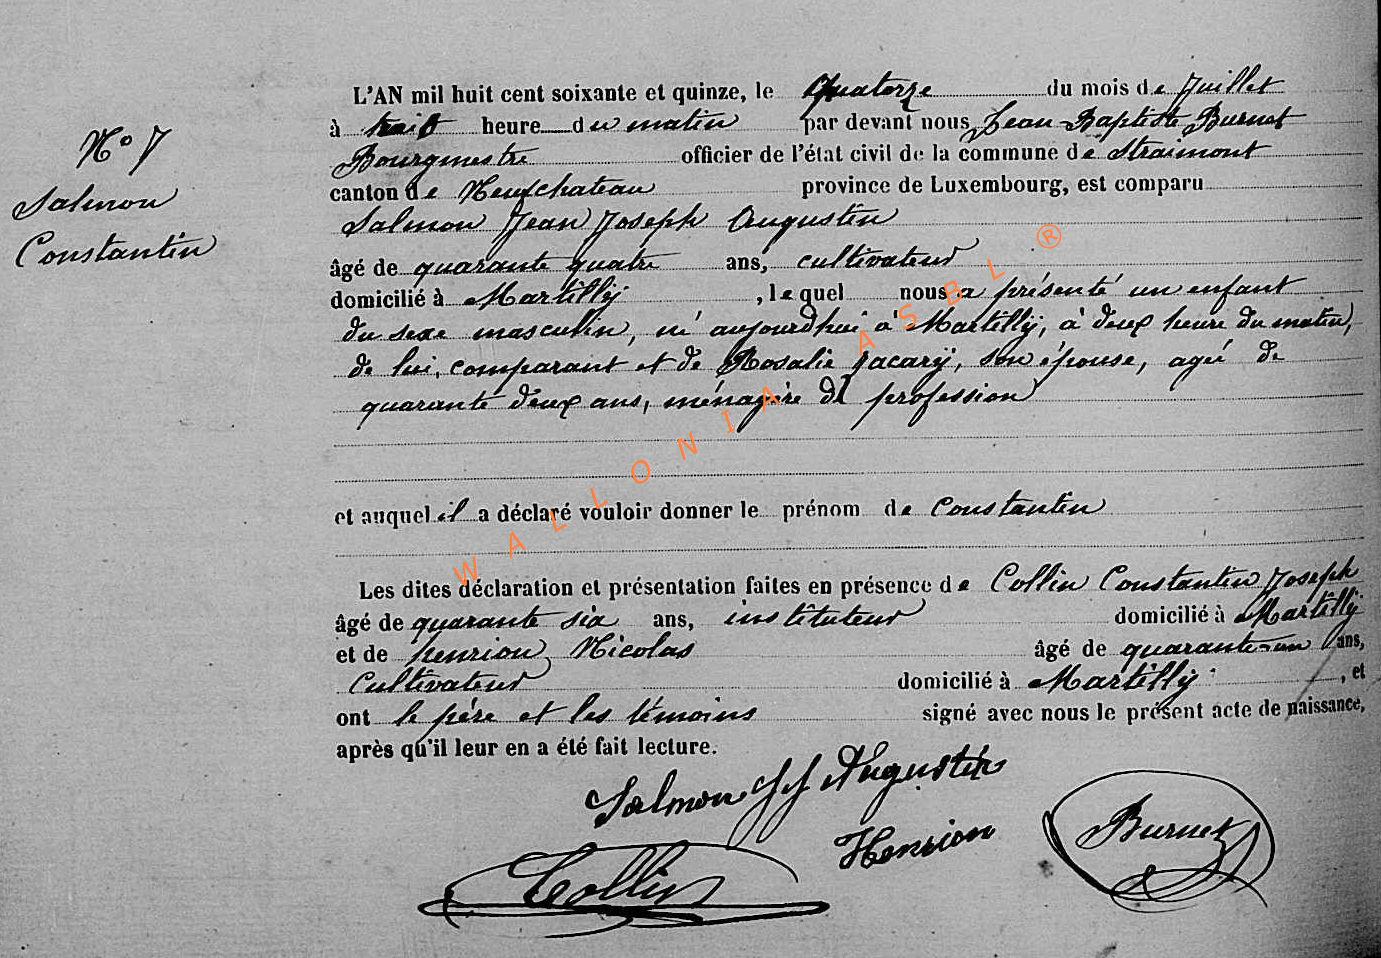 N° 7
Salmon
Constantin
L'AN mil huit cent soixante et quinze, le Quatorze du mois de Juillet
à heure du matin par devant nous Jean-Baptiste Burnet
Bourgmestre officier de l'état civil de la commune de Straimont
canton de Neufchateau province de Luxembourg, est comparu
Salmon Jean Joseph Augustin
âgé de quarante quatre ans, cultivateur
domicilié à Martilly , lequel nous a présenté un enfant
du sexe masculin, né aujourd'hui à Martilly, à deux heure du matin,
de lui, comparant et de Rosalie Jacary, son épouse, agée de
quarante deux ans, ménagère de profession
et auquel il a déclaré vouloir donner le prénom de Constantin
Les dites déclaration et présentation faites en présence de Collin Constantin Joseph
âgé de quarante six ans, instituteur domicilié à Martilly
et de henrion Nicolas âgé de quarante-un ans,
Cultivateur domicilié à Martilly , et
ont le père et les témoins signé avec nous le présent acte de naissance,
après qu'il leur en a été fait lecture.
Salmon J J Augustin
Henrion
Burnet
Collin
WALLONIA ASBL ®